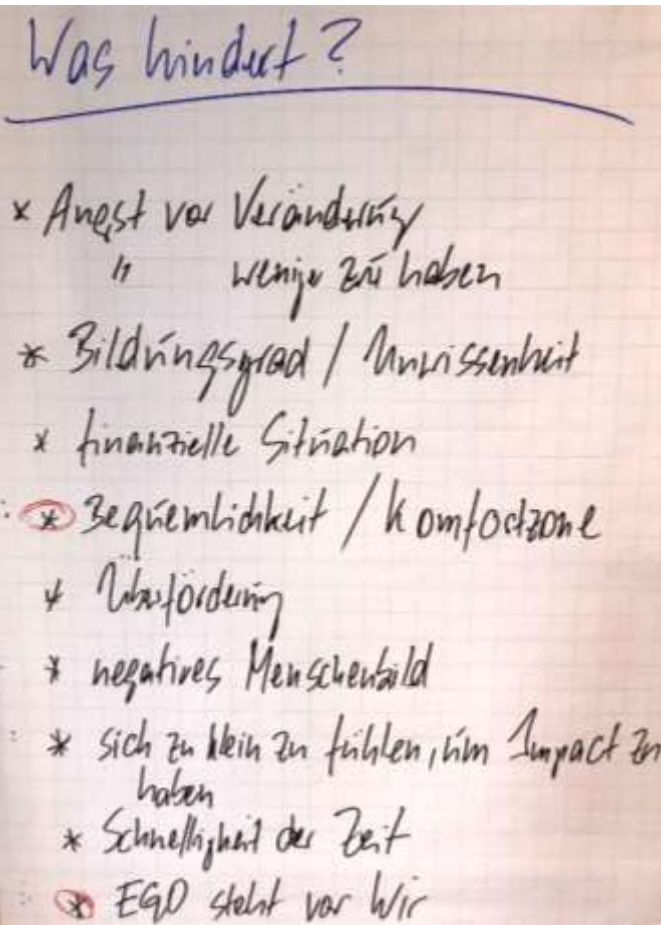 Was hindert?
* Angst vor Veränderung
" weniger zu haben
* Bildungsgrad / Unwissenheit
* finanzielle Situation
* Bequemlichkeit / Komfortzone
* Überforderung
* negatives Menschenbild
* sich zu klein zu fühlen, um Impact zu
haben
* Schnelligkeit der Zeit
* EGO steht vor Wir